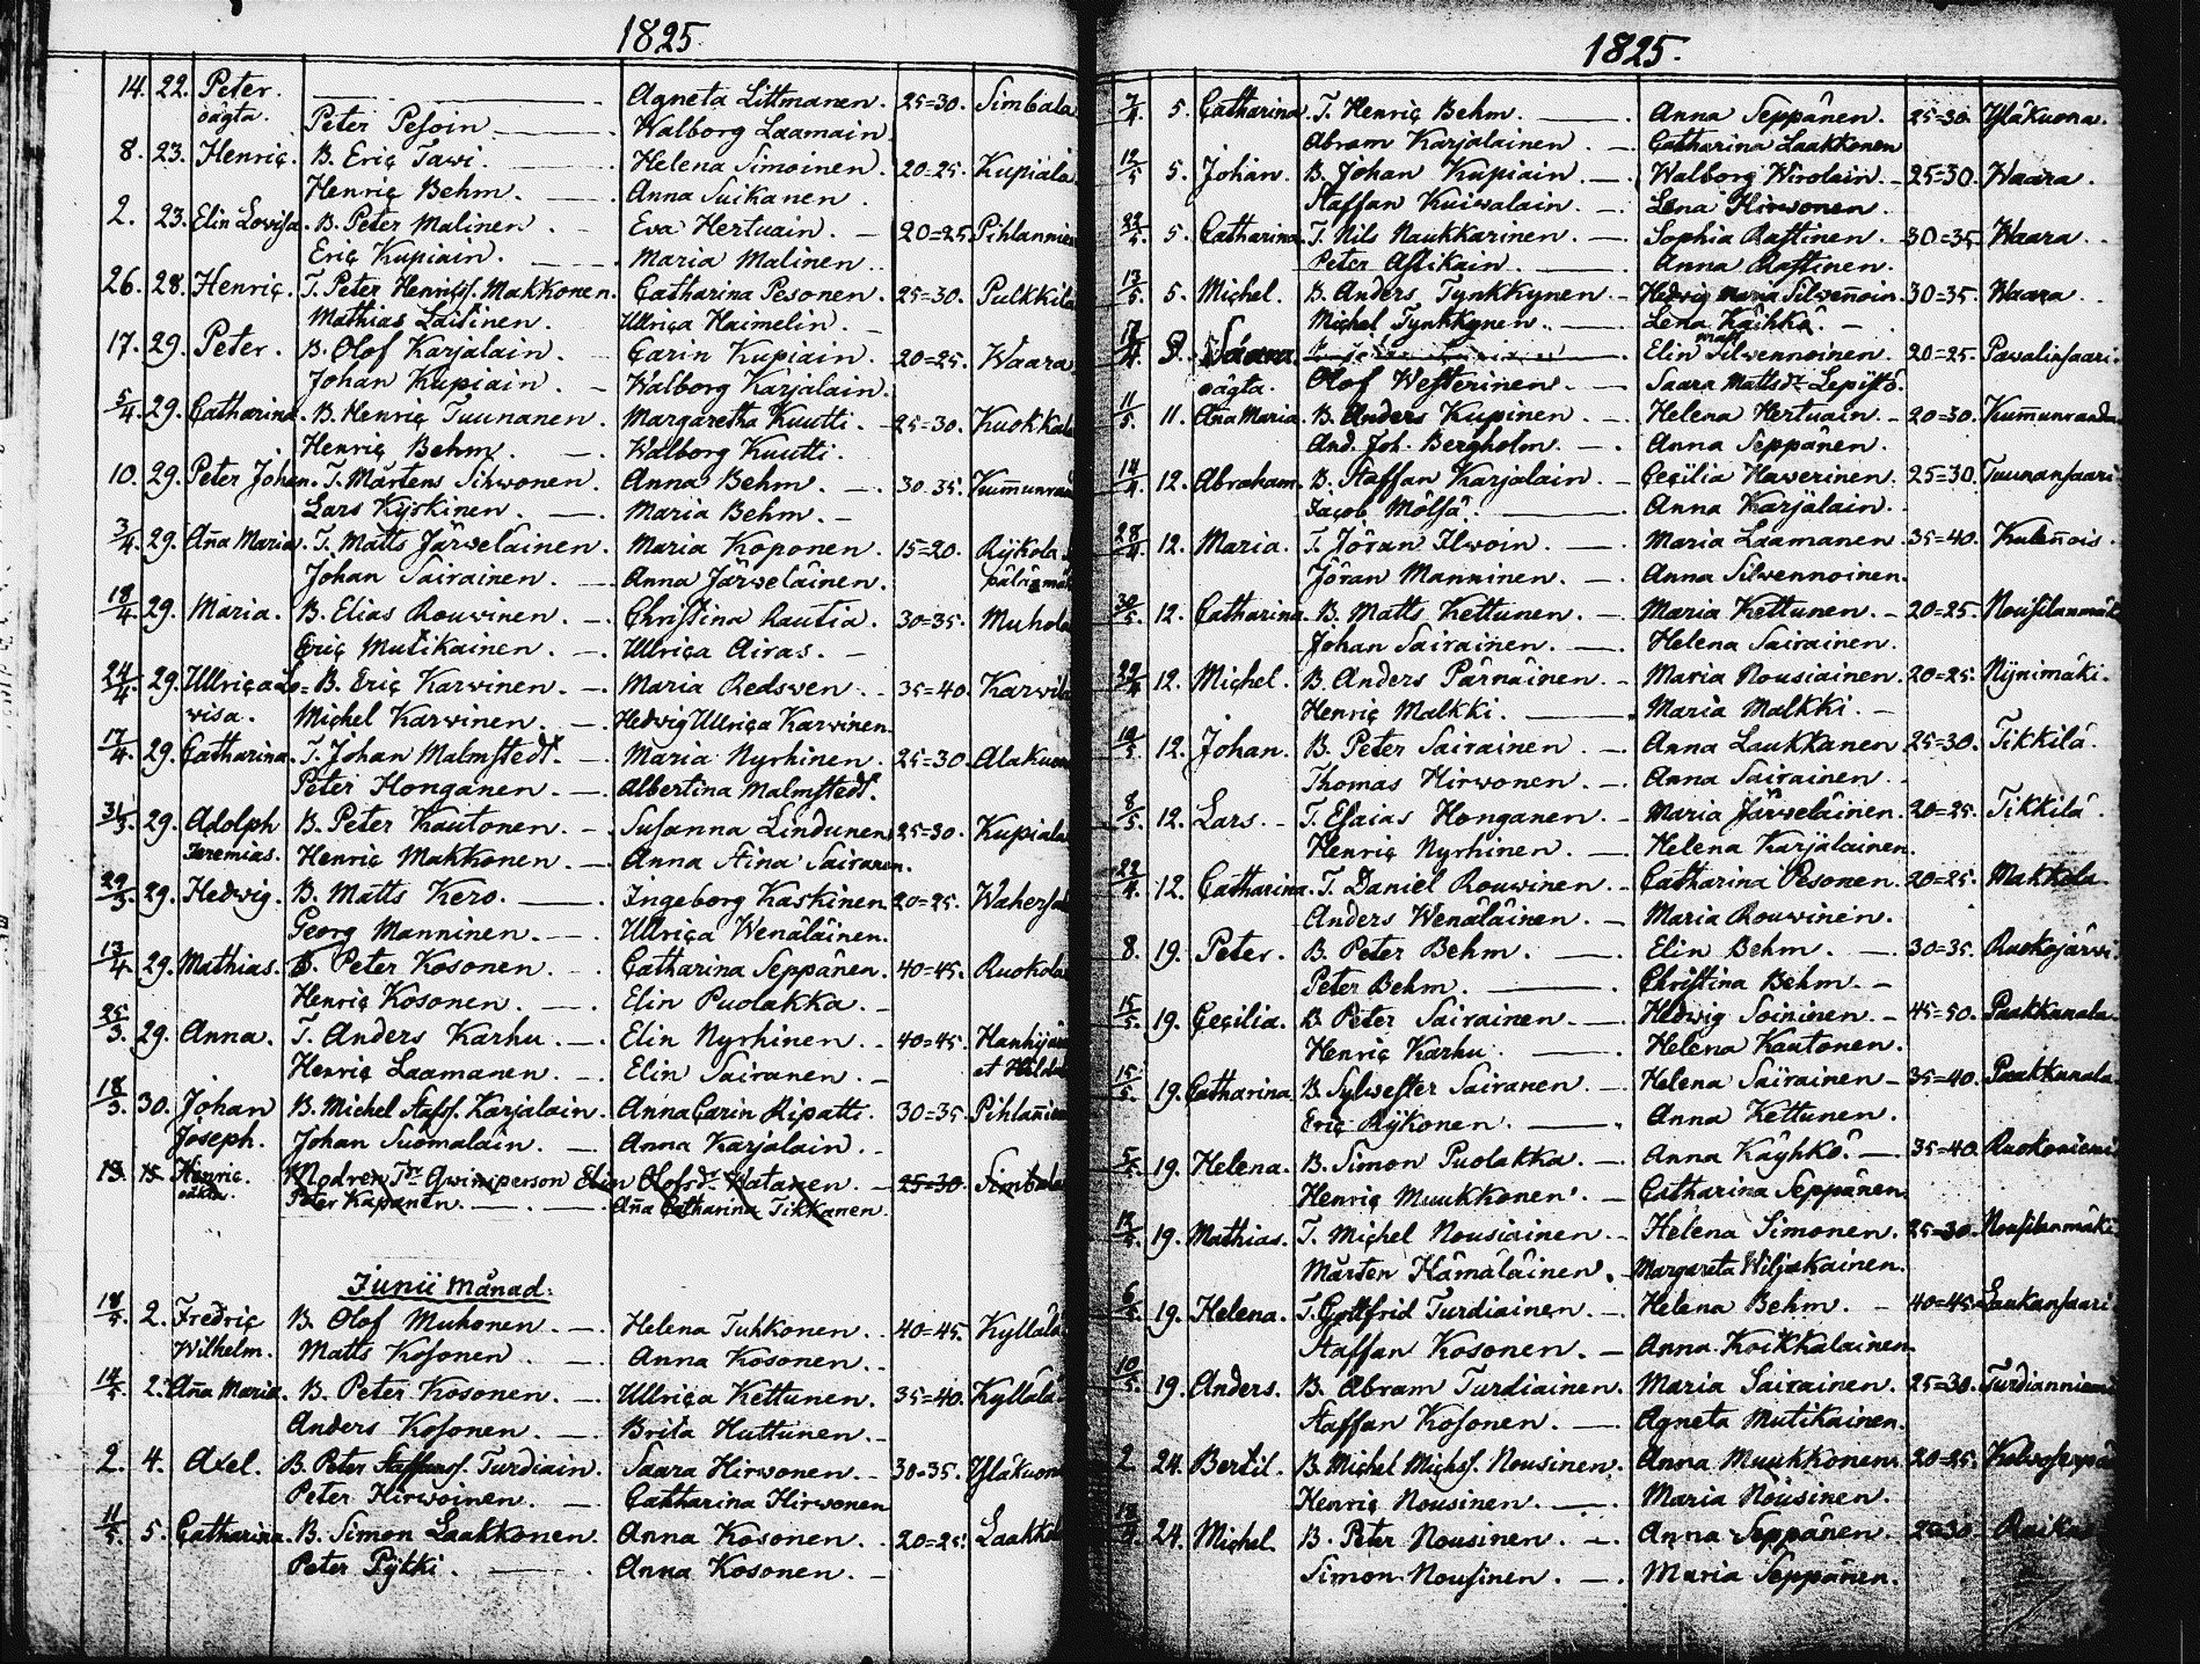 1825.
14. 22. Peter. Agneta Littmanen. 25=30. Simbala
oägta. Peter Pesoin. Walborg Laamain
8. 23. Henric. B. Eric Tawi. Helena Simoinen. 20=25. Kupiala.
Henric Behm. Anna Suikanen.
2. 23. Elin Lovisa. B. Peter Malinen. Eva Hertuain. 20=25 Pihlannie
Eric Kupiain. Maria Malinen.
26. 28. Henric. T. Peter Henricss. Makkonen. Catharina Pesonen. 25=30. Pulkkila
Mathias Laitinen. Ulrica Haimelin.
17. 29. Peter. B. Olof Karjalain. Carin Kupiain. 20=25. Waara
Johan Kupiain. Walborg Karjalain.
5/4. 29. Catharina. B. Henric Tuunanen. Margaretha Kuutti. 25=30. Kuokkala
Henric Behm. Walborg Kuutti.
10. 29. Peter Johan. T. Mårtens Sihwonen. Anna Behm. 30-35. Kum̄unran
Lars Kyskinen. Maria Behm.
3/4. 29. An̄a Maria. T. Matts Järweläinen. Maria Koponen. 15=20. Rÿkola
Johan Sairainen. Anna Järweläinen.
18/4. 29. Maria. B. Elias Rouwinen. Christina Rautia. 30=35. Muhola
Eric Mutikainen. Ulrica Airas.
24/4. 29. Ullrica Lo= B. Eric Karwinen. Maria Redswen. 35=40. Karwila
wisa. Michel Karwinen. Hedwig Ullrica Karwinen.
17/4. 29. Catharina. T. Johan Malmstedt. Maria Nyrhinen. 25=30. Alakuo
Peter Honganen. Albertina Malmstedt.
31/3. 29. Adolph B. Peter Kautonen. Susanna Lindunen 25=30. Kupiala
Jeremias. Henric Makkonen. Anna Stina Sairanen.
29/3. 29. Hedwig. B. Matts Kero. Ingeborg Kaskinen 20=25. Wahersa
Georg Manninen. Ullrica Wenäläinen.
13/4. 29. Mathias. B. Peter Kosonen. Catharina Seppänen. 40=45. Ruokola
Henric Kosonen. Elin Puolakka.
25/3. 29. Anna. T. Anders Karhu. Elin Nyrhinen. 40=45. Hanhijär
Henric Laamanen. Elin Sairanen. et Hilda
18/3. 30. Johan B. Michel Stafss. Karjalain. Anna Carin Ripatti. 30=35. Pihlan̄ie
Joseph. Johan Suomalain. Anna Karjalain.
13. 15. Henric. Modren Elin Olofsdr. Hatanen. 25=30. Simbala
oäkta. Peter Kapanen. An̄a Catharina Tikkanen.
Junii Månad.
18/5. 2. Fredric B. Olof Muhonen. Helena Tuhkonen. 40=45. Kyllälä
Wilhelm. Matts Kosonen. Anna Kosonen.
14/5. 2. An̄a Maria. B. Peter Kosonen. Ullrica Kettunen. 35=40. Kyllälä
Anders Kosonen. Brita Huttunen.
2. 4. Axel. B. Peter Staffanss. Turdiain. Saara Hirwonen. 30=35. Yläkuon
Peter Hirwoinen. Catharina Hirwonen
11/5. 5. Catharina. B. Simon Laakkonen. Anna Kosonen. 20=25. Laakko
Peter Pÿkki. Anna Kosonen.
1825.
7/4. 5. Catharina. T. Henric Behm. Anna Seppänen. 25=30. Yläkuona.
Abram Karjalainen. Catharina Laakkonen
12/5 5. Johan. B. Johan Kupiain. Walborg Wirolain. 25=30. Waara.
Staffan Kuiwalain. Lena Hirwonen.
22/5. 5. Catharina. T. Nils Naukkarinen. Sophia Rastinen. 30=35. Waara.
Peter Astikain. Anna Rastinen.
13/5. 5. Michel. B. Anders Tynkkynen. Hedwig Maria Silwen̄oin. 30=35. Waara.
Michel Tynkkynen. Lena Käihkö.
Saara. Elin Silwennoinen. 20=25. Pawalinsaari.
oägta. Olof Westerinen. Saara Mattsdr. Lepistö.
11/5. 11. An̄a Maria. B. Anders Kupinen. Helena Hertuain. 20=30. Kum̄unranda
And. Joh. Bergholm. Anna Seppänen.
14/4. 12. Abraham. B. Staffan Karjalain. Cecilia Hawerinen. 25=30. Tuunansaari
Jacob Mölsä. Anna Karjalain.
28/4. 12. Maria. T. Jöran Ilwoin. Maria Laamanen 35=40. Kulen̄ois.
Jöran Manninen. Anna Silwennoinen.
30/5. 12. Catharina. B. Matts Kettunen. Maria Kettunen. 20=25. Nousilanmäk
Johan Sairainen. Helena Sairainen.
12. Michel. B. Anders Pärnäinen. Maria Nousiainen. 20=25. Nÿnimäki.
Henric Malkki. Maria Malkki.
12. Johan. B. Peter Sairainen. Anna Laukkanen 25=30. Tikkilä.
Thomas Hirwonen. Anna Sairainen.
8/5. 12. Lars. T. Esaias Honganen. Maria Järweläinen. 20=25. Tikkilä.
Henric Nyrhinen. Helena Karjalainen.
22/4. 12. Catharina. T. Daniel Rouwinen. Catharina Pesonen. 20=25. Makkola.
Anders Wenäläinen. Maria Rouwinen.
8. 19. Peter. B. Peter Behm. Elin Behm. 30=35. Ruokojärwi.
Peter Behm. Christina Behm.
15/5. 19. Cecilia. B. Peter Sairainen. Hedwig Soininen. 45=50. Paakkanala.
Henric Karhu. Helena Kautonen.
15/5. 19. Catharina. B. Sylwester Sairanen. Helena Sairainen 35=40. Paakkanala.
Eric Rÿkonen. Anna Kettunen.
19. Helena. B. Simon Puolakka. Anna Käyhkö. 35=40. Ruokoniemi
Henric Muukkonen. Catharina Seppänen.
19. Mathias. T. Michel Nousiainen. Helena Simonen. 25=30. Nousilanmäki.
Mårten Hämäläinen. Margareta Wiljakainen.
6/5. 19. Helena. T. Gottfrid Turdiainen. Helena Behm. 40=45. Laukansaari.
Staffan Kosonen. Anna Koikkalainen.
10/5. 19. Anders. B. Abram Turdiainen. Maria Sairainen. 25=30. Turdianniemi
Staffan Kosonen. Agneta Mutikainen.
2 24. Bertil. B. Michel Michss. Nousinen. Anna Muukkonen. 20=25.
Henric Nousinen. Maria Nousinen.
24. Michel. B. Peter Nousinen. Anna Seppänen.
Simon Nousinen. Maria Seppänen.